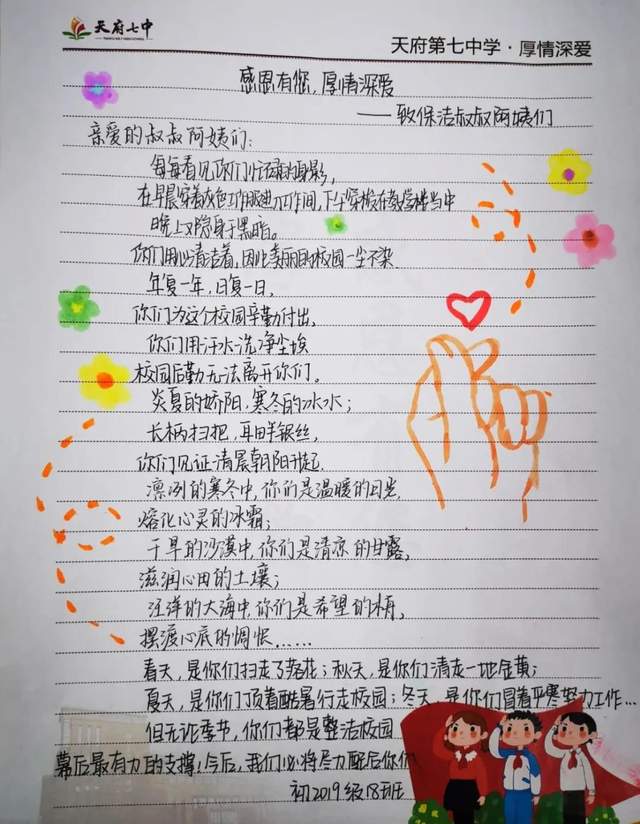 天府七中
天府第七中学·厚情深爱
感恩有您,厚情深爱
——致保洁叔叔阿姨们
亲爱的叔叔阿姨们:
每每看见你们忙碌的身影,
在早晨穿着灰色工作服进入工作间,下午穿梭在教学楼当中
晚上又隐身于黑暗。
你们用心清洁着,因此美丽的校园一尘不染.
年复一年,日复一日,
你们为这个校园辛勤付出,
你们用汗水洗净尘埃
校园后勤无法离开你们。
炎夏的娇阳,寒冬的冰水;
长柄扫把,耳畔银丝,
你们见证清晨朝阳升起.
凛冽的寒冬中,你们是温暖的日光,
熔化心灵的冰霜;
干旱的沙漠中,你们是清凉的甘露,
滋润心田的土壤;
汪洋的大海中,你们是希望的冰舟,
摆渡心底的惆怅……
春天,是你们扫走了落花;秋天,是你们清走一地金黄;
夏天,是你们顶着酷暑行走校园;冬天,是你们冒着严寒努力工作…
但无论季节,你们都是整洁校园
幕后最有力的支撑!今后,我们必将尽力配合你们
初2019级18班